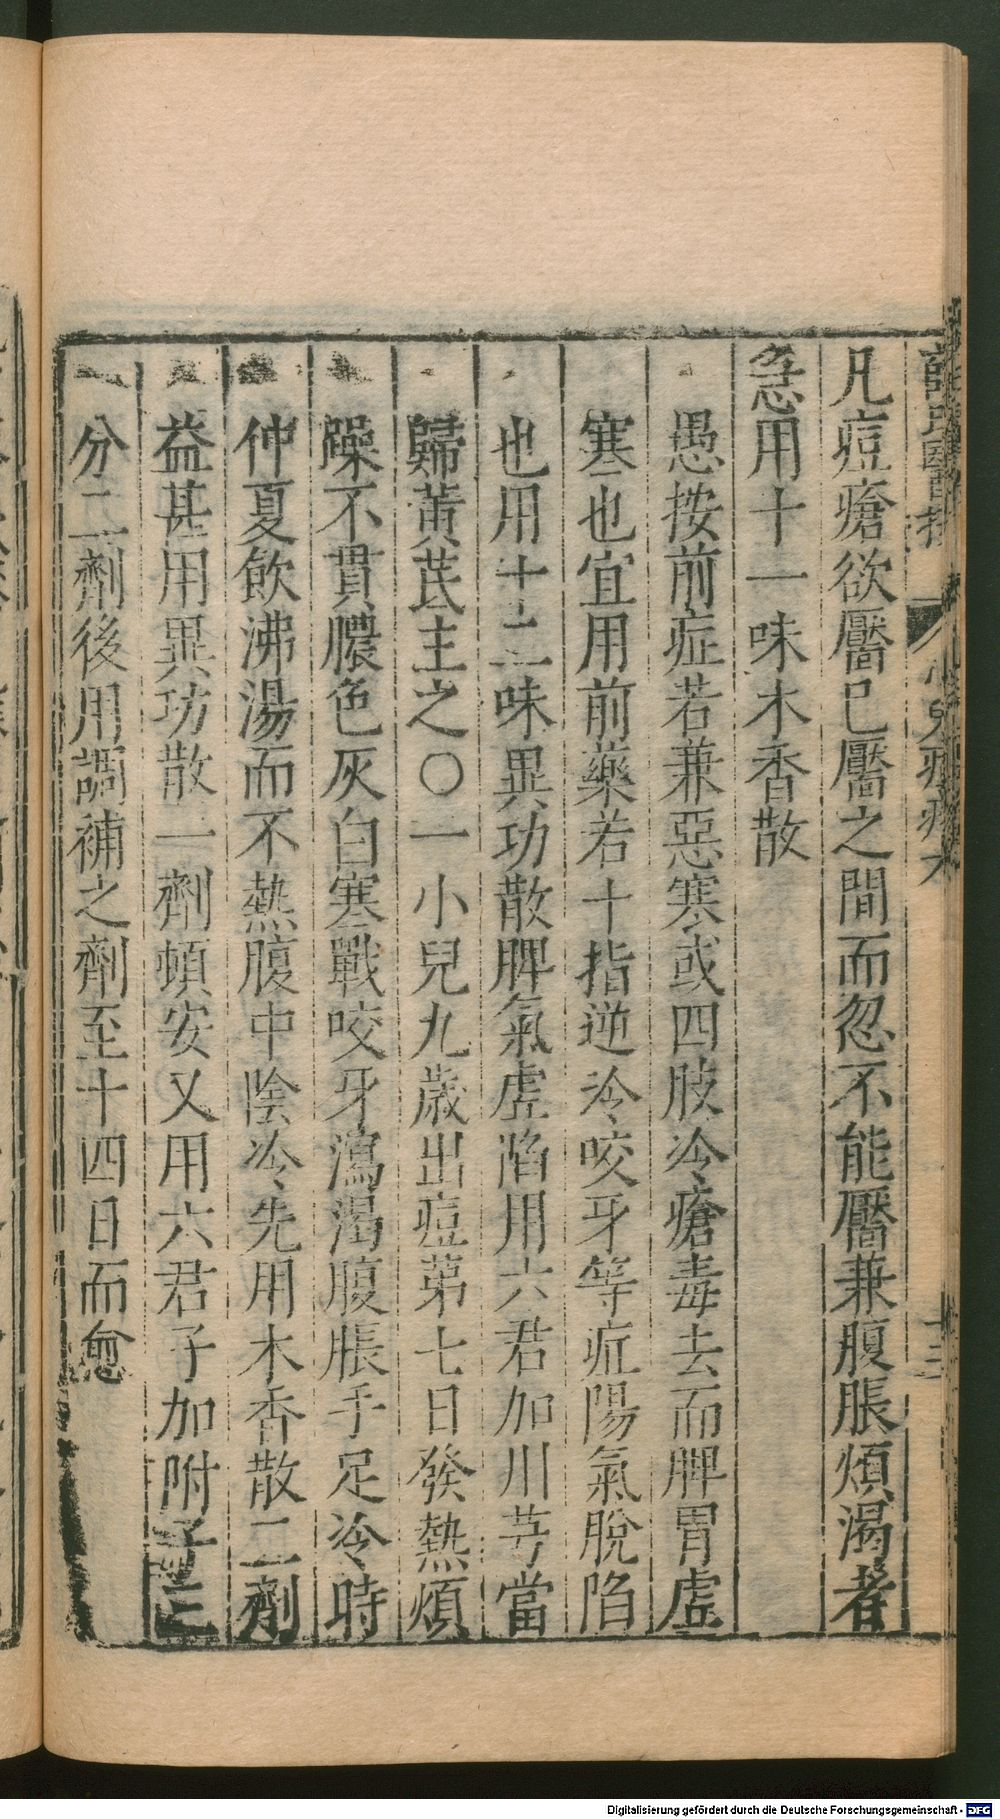 凡痘瘡欲靨已靨之間而忽不能靨兼腹脹煩渴者
急用十一味木香散
愚按前症若兼惡寒或四肢冷瘡毒去而脾胃虛
寒也宜用前藥若十指逆冷咬牙等症陽氣脫陷
也用十二味異功散脾氣虛陷用六君加川芎當
歸黃芪主之〇一小兒九歲出痘第七日發熱煩
躁不貫膿色灰白寒戰咬牙瀉渴腹脹手足冷時
仲夏飲沸湯而不熱腹中陰冷先用木香散二劑
益甚用異功散一劑頓安又用六君子加附子三
分二劑後用調補之劑至十四日而愈
Digitalisierung gefördert durch die Deutsche Forschungsgemeinschaft - DFG